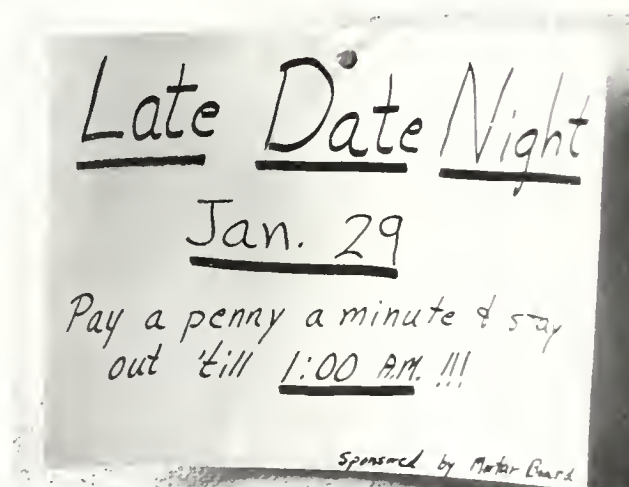 Late Date Night
Jan. 29
Pay a penny a minute & stay
out 'till 1:00 A.M. !!!
Sponsored by Mortar Board